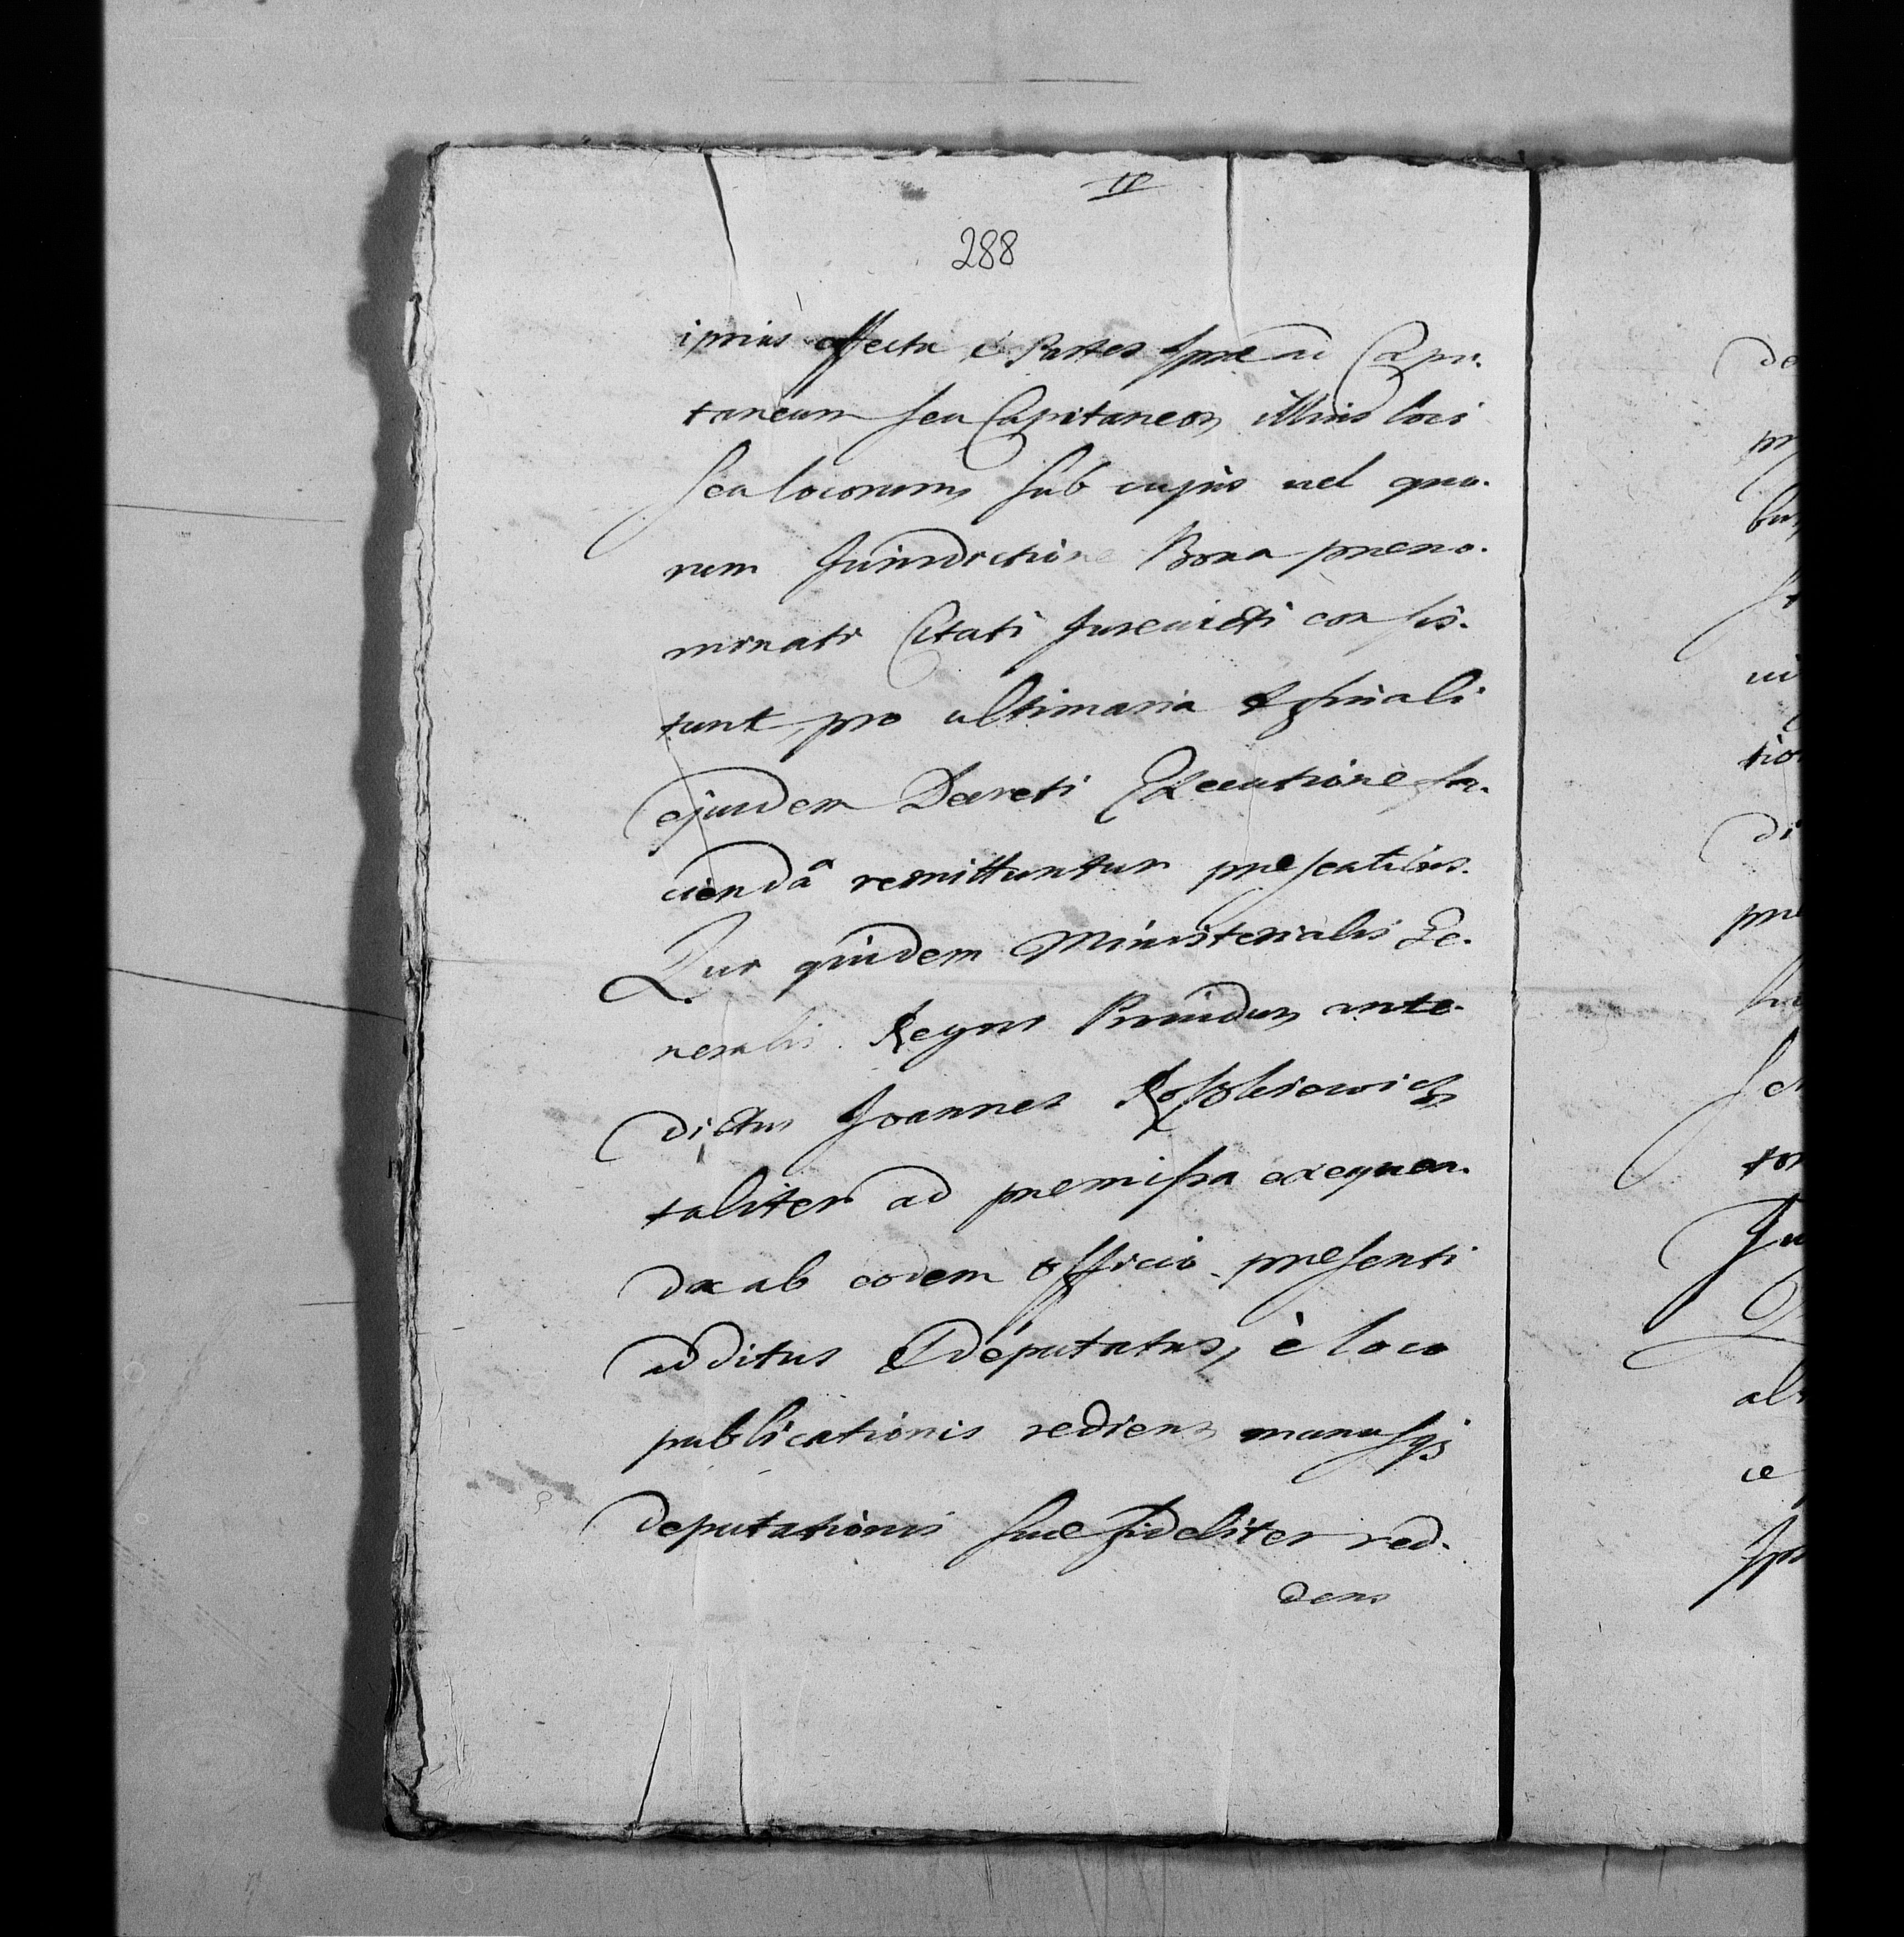 II
288
ipsius effectu et Partes Ipsae ad Capi-
taneum seu Capitaneos illius loci
seu locorum, sub cujus vel quo-
rum Jurisdictione Bona preno-
minati Citati Jurevicti consis-
tunt, pro ultimaria et finali
ejusdem Decreti Executione fa-
ciendâ remittuntur
Qui quidem Ministerialis Ge-
neralis Regni Providus ante-
dictus Joannes
taliter ad premissa exequen-
da ab eodem officio presenti
additus et deputatus, è loco
publicationis rediens, munusq3
deputationis suae fideliter red-
dens